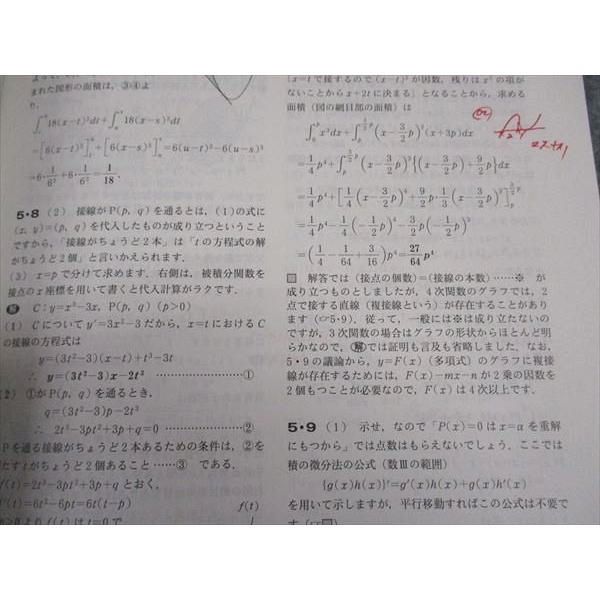 まれた図形の面積は，③④よ
り，
∫18(x−t)²dt+∫18(x−s)²dt
=[6(x−t)³]+[6(x−s)³]=6(u−t)³−6(u−s)³
=6・1/6³+6・1/6³=1/18．
5・8 (2) 接線が P(p, q) を通るとは，(1)の式に
(x, y)=(p, q) を代入したものが成り立つということ
ですから，「接線がちょうど2本」は「tの方程式の解
がちょうど2個」と言いかえられます．
(3) x=p で分けて求めます．右側は，被積分関数を
接点のx座標を用いて書くと代入計算がラクです．
解 C：y=x³−3x，P(p, q) (p>0)
(1) Cについて y′=3x²−3 だから，x=t における C
の接線の方程式は
y=(3t²−3)(x−t)+t³−3t
∴ y=(3t²−3)x−2t³ ……①
(2) ①が P(p, q) を通るとき，
q=(3t²−3)p−2t³
∴ 2t³−3pt²+3p+q=0 ……②
Pを通る接線がちょうど2本あるための条件は，②を
たす t がちょうど2個あること……③ である．
f(t)=2t³−3pt²+3p+q とおく．
f′(t)=6t²−6pt=6t(t−p)
f(t)
p>0 より f(t) は t=0 で
x=t で接するので (x−t)² が因数，残りは x² の項が
ないことから x+2t に決まる」となることから，求める
面積（図の網目部の面積）は
∫x³dx+∫(x−3/2p)²(x+3p)dx
=1/4p⁴+∫(x−3/2p)²{(x−3/2p)+9/2p}dx
=1/4p⁴+[1/4(x−3/2p)⁴+9/2p・1/3(x−3/2p)³]
=1/4p⁴−1/4(−1/2p)⁴−3/2p(−1/2p)³
=(1/4−1/64+3/16)p⁴=27/64p⁴
解答では（接点の個数）=（接線の本数）……※ が
成り立つものとしましたが，4次関数のグラフでは，2
点で接する直線（複接線という）が存在することがあり
ます（☞5・9）．従って，一般には※は成り立たないの
ですが，3次関数の場合はグラフの形状からほとんど明
らかなので，解では証明も言及も省略しました．なお，
5・9の議論から，y=F(x)（多項式）のグラフに複接
線が存在するためには，F(x)−mx−n が2乗の因数を
2個もつことが必要なので，F(x) は4次以上です．
5・9 (1) 示せ，なので「P(x)=0 は x=α を重解
にもつから」では点数はもらえないでしょう．ここでは
積の微分法の公式（数Ⅲの範囲）
{g(x)h(x)}′=g′(x)h(x)+g(x)h′(x)
を用いて示しますが，平行移動すればこの公式は不要で